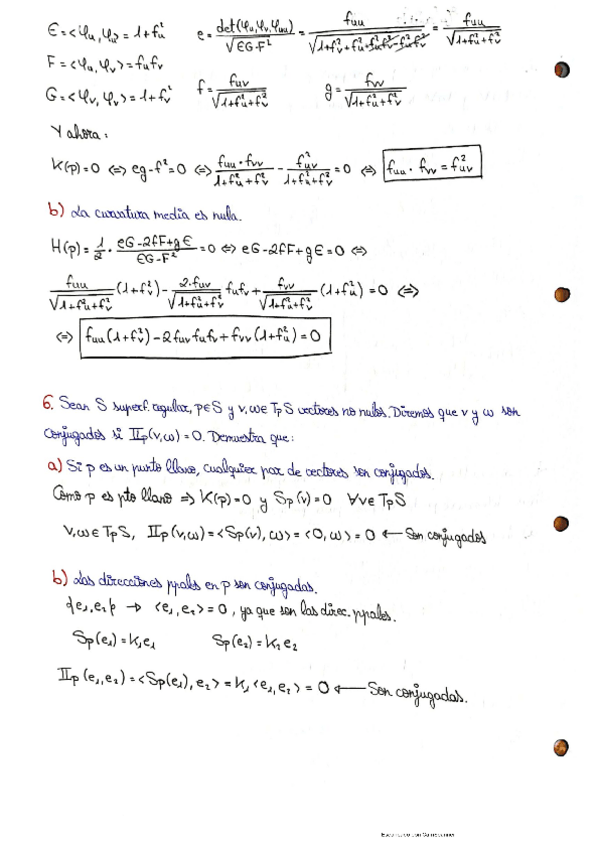 E = <φu, φu> = 1+fu² e = det(φu, φv, φuu) / √(EG-F²) = fuu / √(1+fv²+fu²+fu²fv²-fu²fv²) = fuu / √(1+fu²+fv²)
F = <φu, φv> = fufv
G = <φv, φv> = 1+fv² f = fuv / √(1+fu²+fv²) g = fvv / √(1+fu²+fv²)
Y ahora:
K(p)=0 ⇔ eg-f²=0 ⇔ fuu·fvv / 1+fu²+fv² - fuv² / 1+fu²+fv² = 0 ⇔ fuu·fvv = fuv²
b) La curvatura media es nula.
H(p) = 1/2 · eG-2fF+gE / EG-F² = 0 ⇔ eG-2fF+gE = 0 ⇔
fuu / √(1+fu²+fv²) (1+fv²) - 2·fuv / √(1+fu²+fv²) fufv + fvv / √(1+fu²+fv²) (1+fu²) = 0 ⇔
⇔ fuu(1+fv²)-2fuvfufv+fvv(1+fu²)=0
6. Sean S superf. regular, p∈S y v,ω∈TpS vectores no nulos. Diremos que v y ω son
conjugados si IIp(v,ω)=0. Demuestra que:
a) Si p es un punto llano, cualquier par de vectores son conjugados.
Como p es pto llano ⇒ K(p)=0 y Sp(v)=0 ∀v∈TpS
v,ω∈TpS, IIp(v,ω)=<Sp(v),ω>=<0,ω>=0 ← Son conjugados
b) Las direcciones ppales en p son conjugadas.
{e1,e2} → <e1,e2>=0, ya que son las direc. ppales.
Sp(e1)=K1e1 Sp(e2)=K2e2
IIp(e1,e2)=<Sp(e1),e2>=K1<e1,e2>=0 ← Son conjugadas.